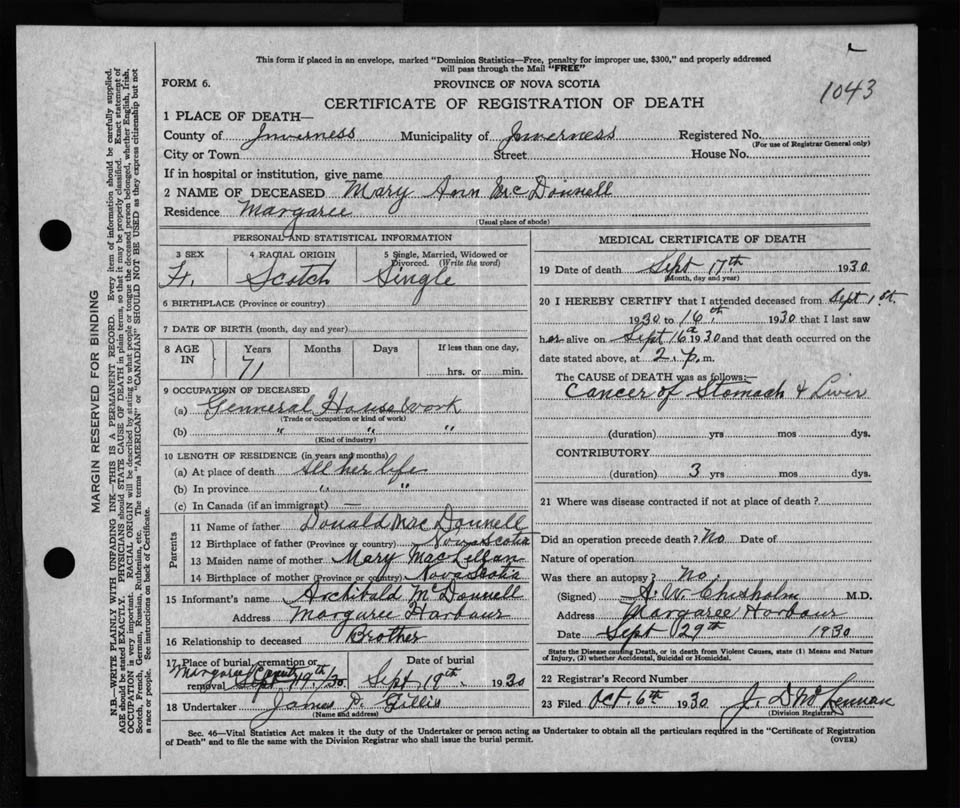 This form if placed in an envelope, marked "Dominion Statistics—Free, penalty for improper use, $300," and properly addressed
will pass through the Mail "FREE"
FORM 6.
PROVINCE OF NOVA SCOTIA
1043
CERTIFICATE OF REGISTRATION OF DEATH
1 PLACE OF DEATH—
County of Inverness Municipality of Inverness Registered No.
(For use of Registrar General only)
City or Town Street House No.
If in hospital or institution, give name
2 NAME OF DECEASED Mary Ann McDonnell
Residence Margaree
(Usual place of abode)
PERSONAL AND STATISTICAL INFORMATION
3 SEX 4 RACIAL ORIGIN 5 Single, Married, Widowed or
Divorced. (Write the word)
F. Scotch Single
6 BIRTHPLACE (Province or country)
7 DATE OF BIRTH (month, day and year)
8 AGE IN Years Months Days If less than one day,
71 hrs. or min.
9 OCCUPATION OF DECEASED
(a) Genneral House work
(Trade or occupation or kind of work)
(b) " " "
(Kind of industry)
10 LENGTH OF RESIDENCE (in years and months)
(a) At place of death All her life
(b) In province " "
(c) In Canada (if an immigrant) —
Parents
11 Name of father Donald MacDonnell
12 Birthplace of father (Province or country) Nova Scotia
13 Maiden name of mother Mary MacLellan
14 Birthplace of mother (Province or country) Nova Scotia
15 Informant's name Archibald McDonnell
Address Margaree Harbour
16 Relationship to deceased Brother
17 Place of burial, cremation or Date of burial
removal Margaree Sept 19th/30 Sept 19th. 1930
18 Undertaker James D. Gillis
(Name and address)
MEDICAL CERTIFICATE OF DEATH
19 Date of death Sept 17th. 1930.
(Month, day and year)
20 I HEREBY CERTIFY that I attended deceased from Sept 1st.
1930 to 16th. 1930 that I last saw
her alive on Sept 16th 1930 and that death occurred on the
date stated above, at 2. p. m.
The CAUSE of DEATH was as follows:—
Cancer of Stomach & Liver
(duration) yrs mos dys.
CONTRIBUTORY
(duration) 3 yrs mos dys.
21 Where was disease contracted if not at place of death?
Did an operation precede death? No Date of
Nature of operation
Was there an autopsy? No.
(Signed) A. W. Chisholm M.D.
Address Margaree Harbour
Date Sept 29th 1930
State the Disease causing Death, or in death from Violent Causes, state (1) Means and
Nature of Injury, (2) whether Accidental, Suicidal or Homicidal.
22 Registrar's Record Number
23 Filed Oct. 6th 1930. J. D. McLennan
(Division Registrar)
Sec. 46—Vital Statistics Act makes it duty of the Undertaker or person acting as Undertaker to obtain all the particulars required in the "Certificate of Registration
of Death" and to file the same with the Division Registrar who shall issue the burial permit. (OVER)
MARGIN RESERVED FOR BINDING
N.B.—WRITE PLAINLY WITH UNFADING INK—THIS IS A PERMANENT RECORD. Every item of information should be carefully supplied.
AGE should be stated EXACTLY. PHYSICIANS should STATE CAUSE OF DEATH in plain terms, so that it may be properly classified. Exact statement of
OCCUPATION is very important. RACIAL ORIGIN will be described by stating to what people or tongue the deceased person belonged, whether English, Irish,
Scotch, French, German, Russian, Ruthenian, etc. The terms "AMERICAN" or "CANADIAN" SHOULD NOT BE USED as they express citizenship but not
a race or people. See instructions on back of Certificate.